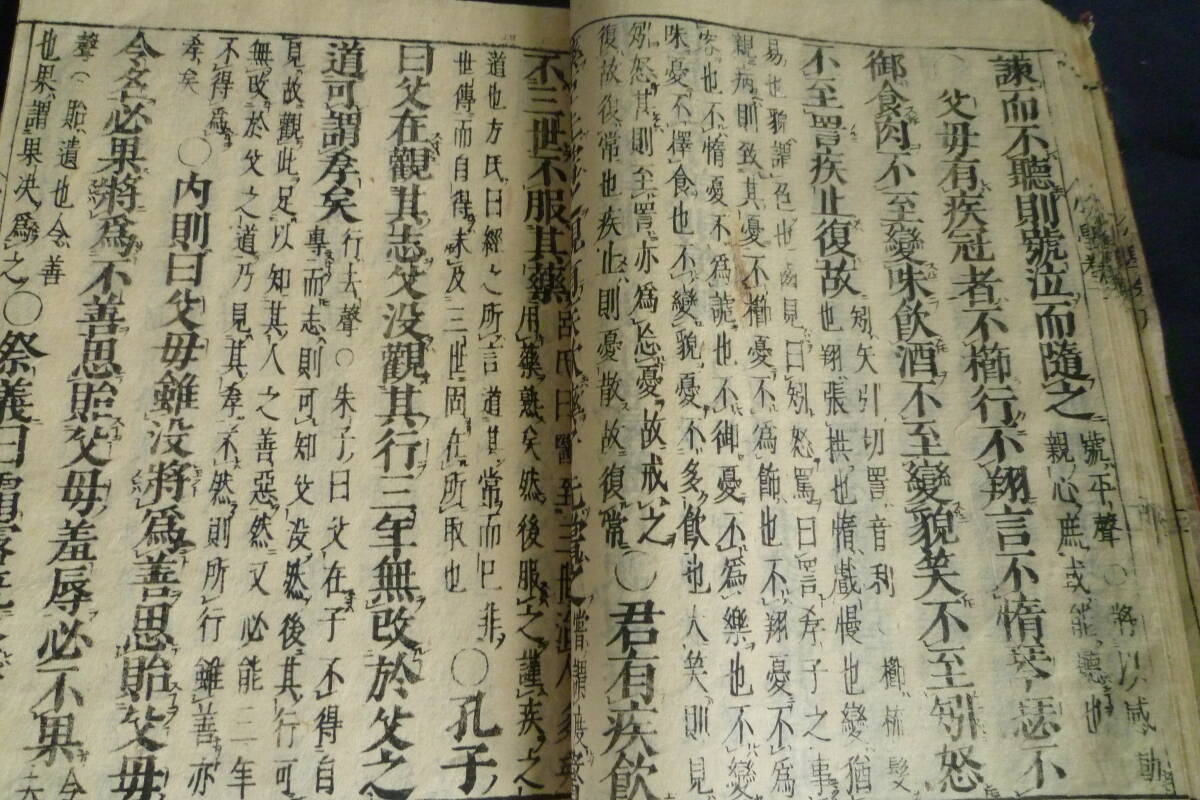 諫而不聽則號泣而隨之 號平聲○將以感動
親心庶或能聽也
父母有疾冠者不櫛行不翔言不惰琴瑟不
御食肉不至變味飲酒不至變貌笑不至矧怒
不至詈疾止復故 矧矢引切詈音利 櫛梳髮
也翔張拱也惰戲慢也變猶
易也貌謂色也 見曰矧怒罵曰詈孝子之事
親病則致其憂不櫛憂不為飾也不翔憂不為
容也不惰憂不為 也不御憂不為樂也不變
味憂不擇食也不變貌憂不多飲也大笑則見
矧怒其則至詈亦為忘憂故戒之
復故復常也疾止則憂散故復常○君有疾飲
不三世不服其藥
用藥熟矣然後服之謹疾之
道也方氏曰經之所言道其常而已非
世傳而自得未及三世固在所取也 ○孔子
曰父在觀其志父没觀其行三年無改於父之
道可謂孝矣 行去聲○朱子曰父在子不得自
專而志則可知父没然後其行可
見故觀此足以知其人之善惡然又必能三年
無改於父之道乃見其孝不然則所行雖善亦
不得為
孝矣 ○内則曰父母雖没將為善思貽父母
令名必果將為不善思貽父母羞辱必不果 令
聲○貽遺也令善
也果謂果决為之○祭義曰霜露既